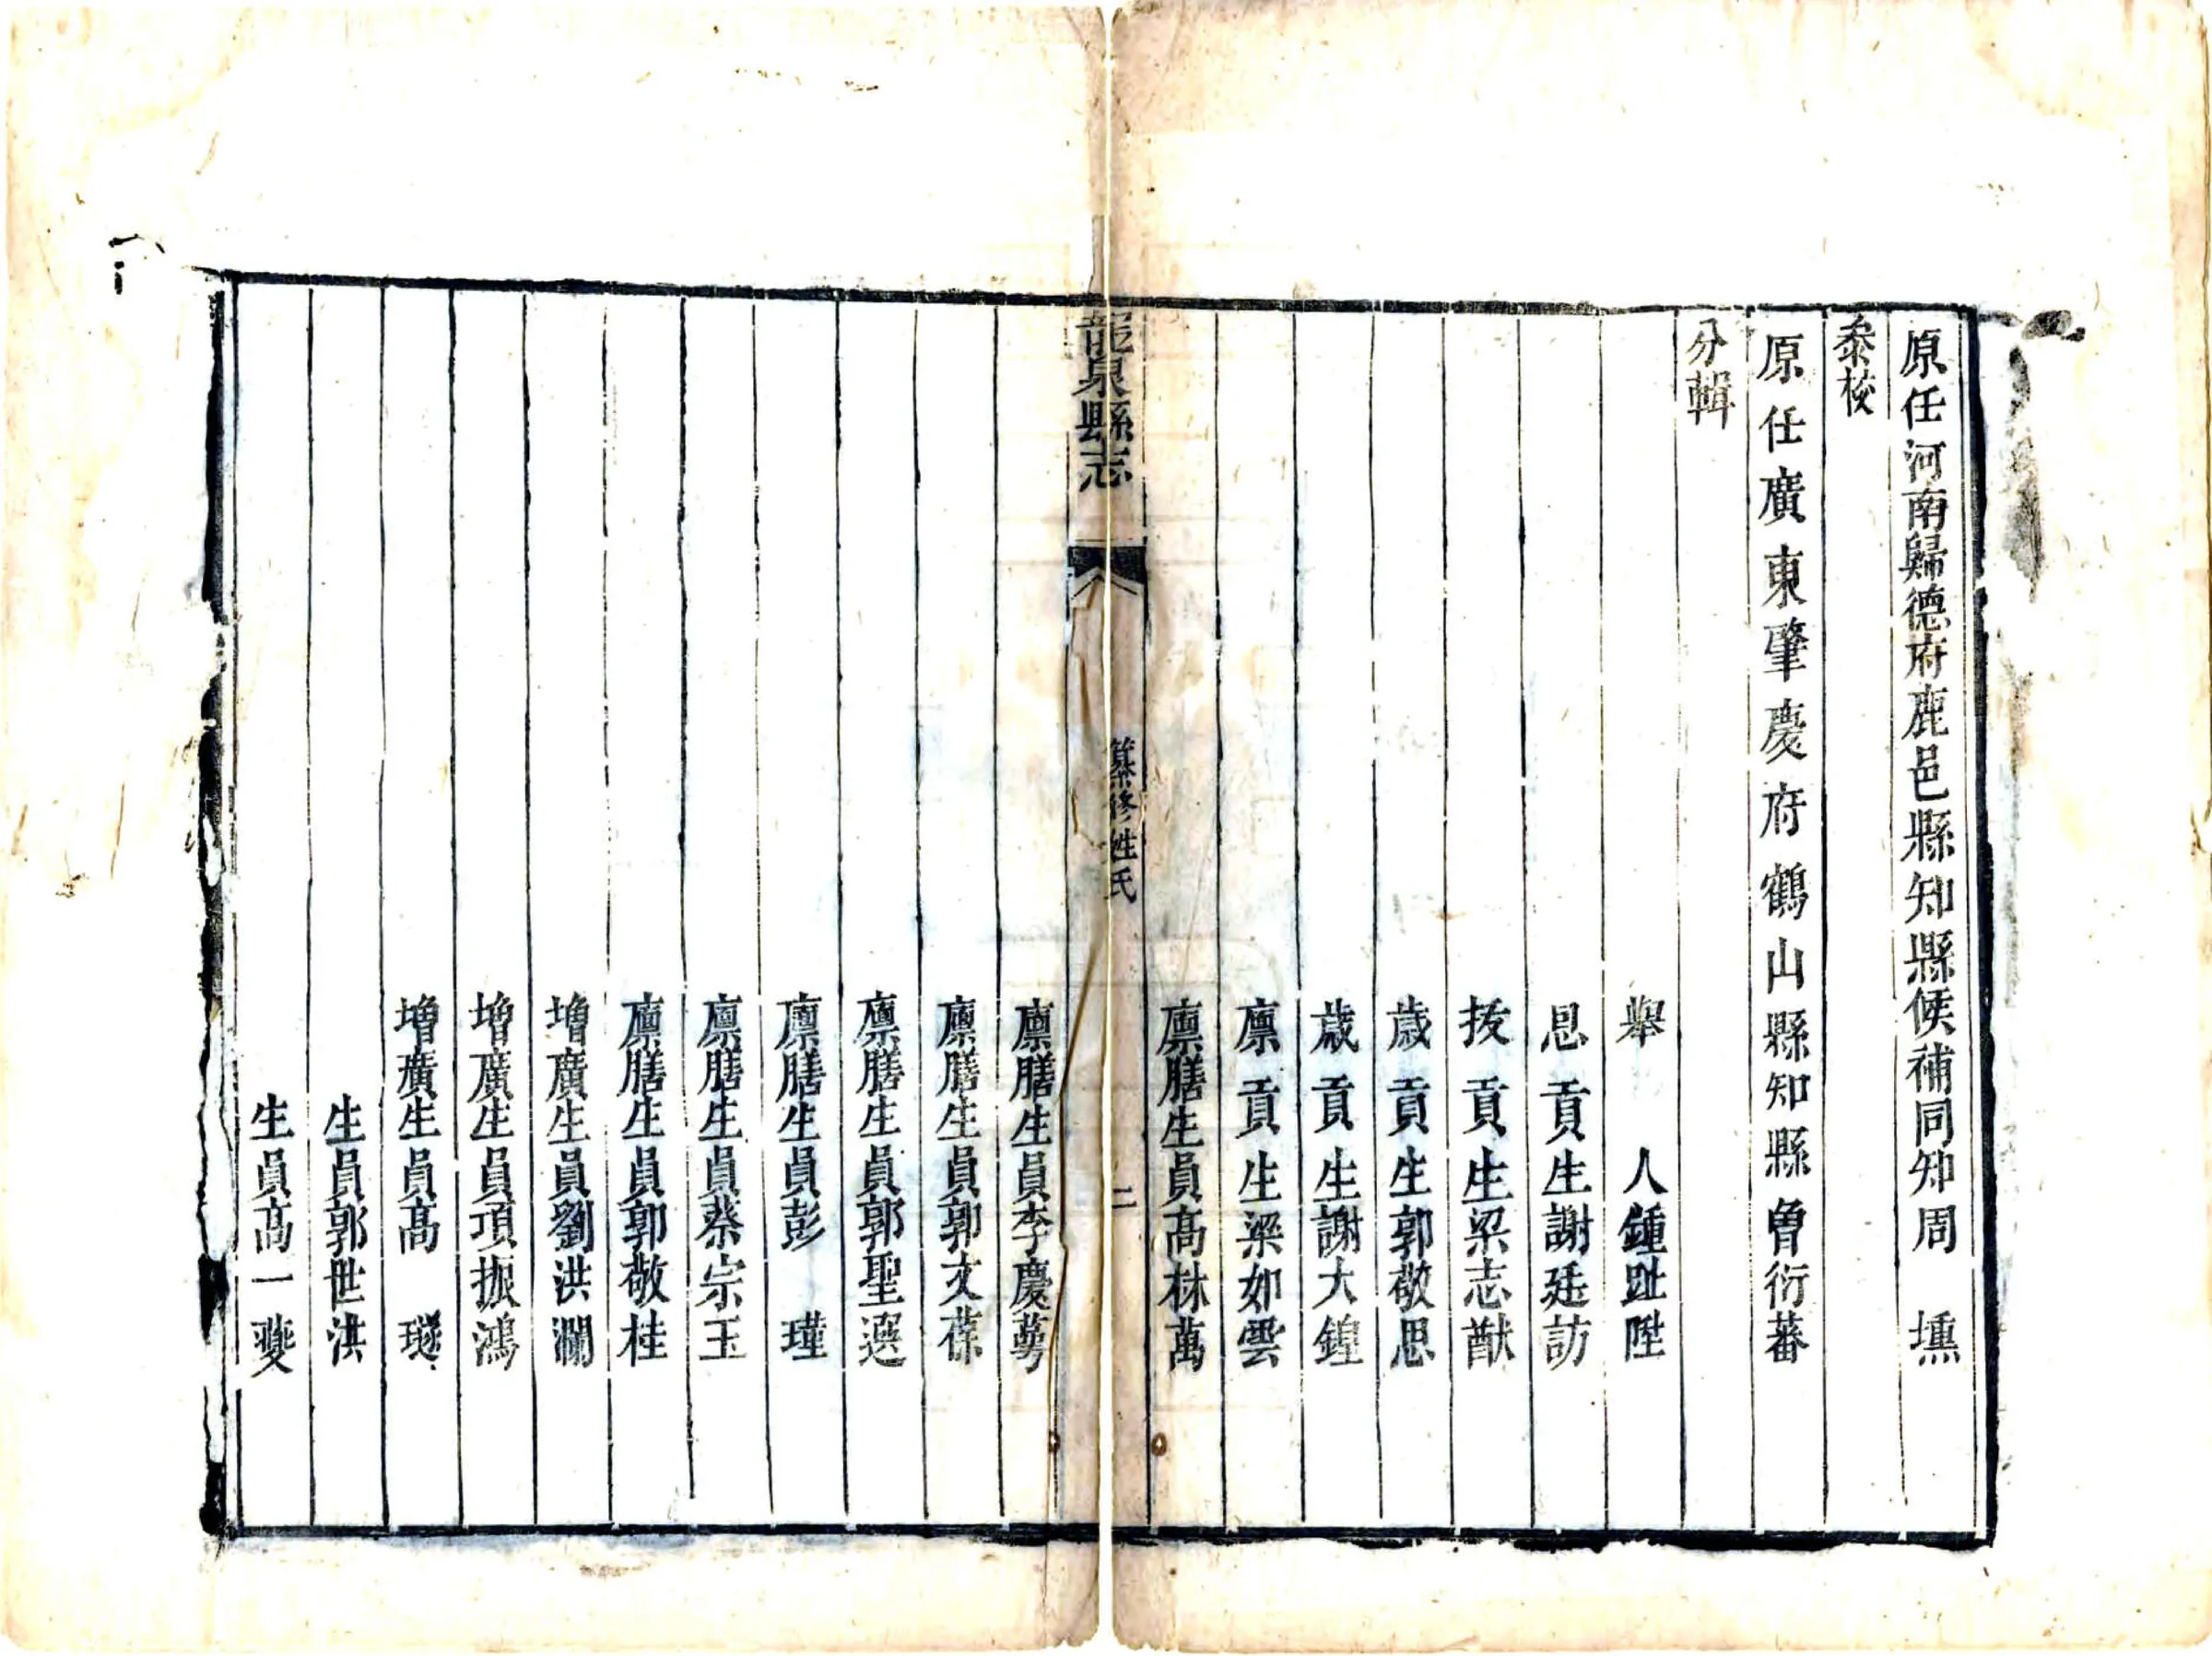 原任河南歸德府鹿邑縣知縣候補同知周　壎
叅校
原任廣東肇慶府鶴山縣知縣曾衍蕃
分輯
舉　人鍾趾陞
恩貢生謝廷訪
拔貢生梁志猷
歲貢生郭敬思
歲貢生謝大鍠
廩貢生梁如雲
廩膳生員高林萬
龍泉縣志
纂修姓氏
二
廩膳生員李慶萼
廩膳生員郭文葆
廩膳生員郭聖選
廩膳生員彭　瑾
廩膳生員蔡宗玉
廩膳生員郭敬桂
增廣生員劉洪瀾
增廣生員項振鴻
增廣生員高　璲
生員郭世洪
生員高一夔